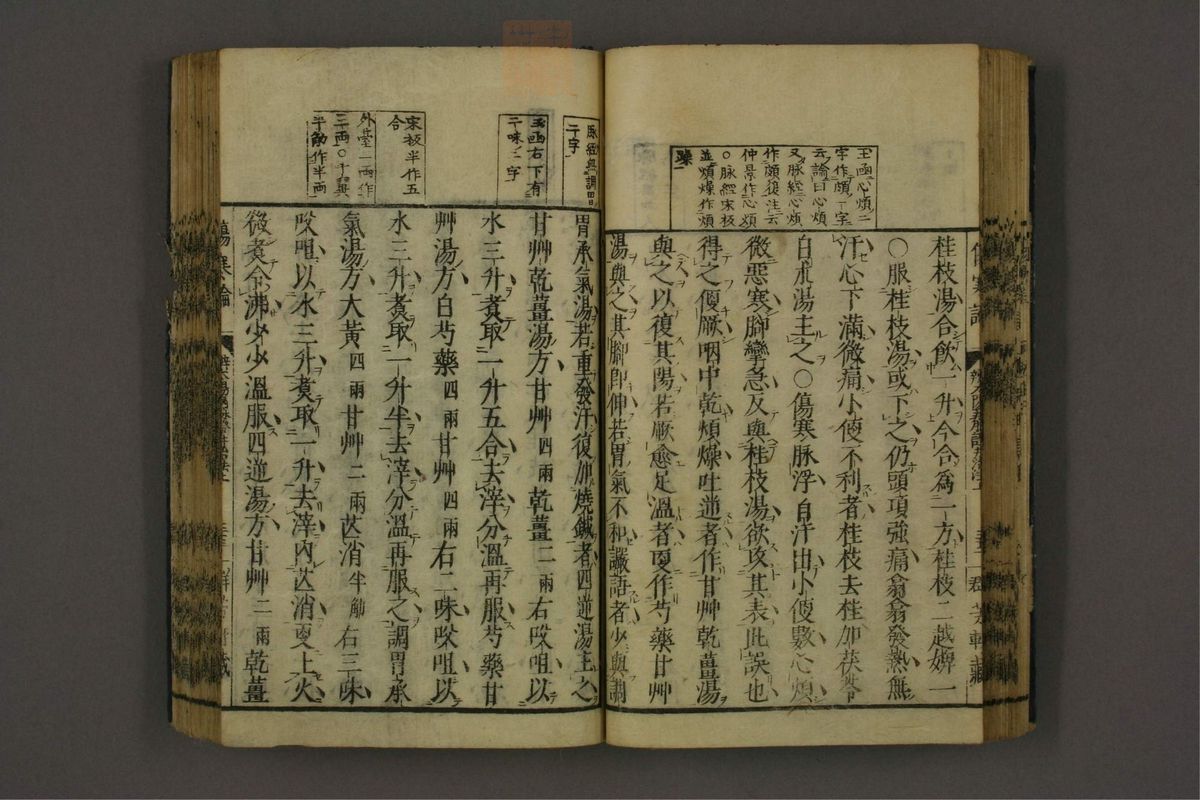 玉函心煩二
字作頗一字
云論曰心煩
又脈經心煩
作頗復注云
仲景作心煩
○脈經宋板
並煩燥作煩
躁
桂枝湯合飲一升今合爲一方桂枝二越婢一
○服桂枝湯或下之仍頭項強痛翕翕發熱無
汗心下滿微痛小便不利者桂枝去桂加茯苓
白朮湯主之○傷寒脈浮自汗出小便數心煩
微惡寒脚攣急反與桂枝湯欲攻其表此誤也
得之便厥咽中乾煩燥吐逆者作甘艸乾薑湯
與之以復其陽若厥愈足溫者更作芍藥甘艸
湯與之其脚即伸若胃氣不和讝語者少與調
脉經無調胃
二字
玉函右下有
二味二字
宋板半作五
合
外臺二兩作
三兩○千金翼
半觔作半兩
胃承氣湯若重發汗復加燒鍼者四逆湯主之
甘艸乾薑湯方甘艸四兩乾薑二兩右㕮咀以
水三升煑取一升五合去滓分溫再服芍藥甘
艸湯方白芍藥四兩甘艸四兩右二味㕮咀以
水三升煑取一升半去滓分溫再服之調胃承
氣湯方大黃四兩甘艸二兩芒消半觔右三味
㕮咀以水三升煑取一升去滓內芒消更上火
微煑令沸少少溫服四逆湯方甘艸二兩乾薑
傷寒論